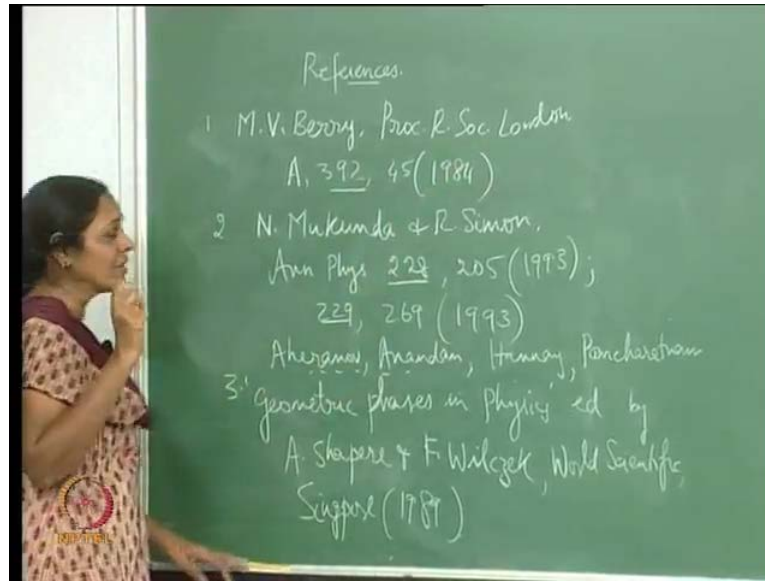 References.
1 M.V. Berry, Proc. R. Soc. London
A, 392, 45 (1984)
2 N. Mukunda & R. Simon.
Ann Phys 228, 205 (1993);
229, 269 (1993)
Aharanov, Anandan, Hannay, Pancharatnam
3. 'Geometric phases in Physics' ed by
A. Shapere & F. Wilczek, World Scientific,
Singpore (1989)
NPTEL